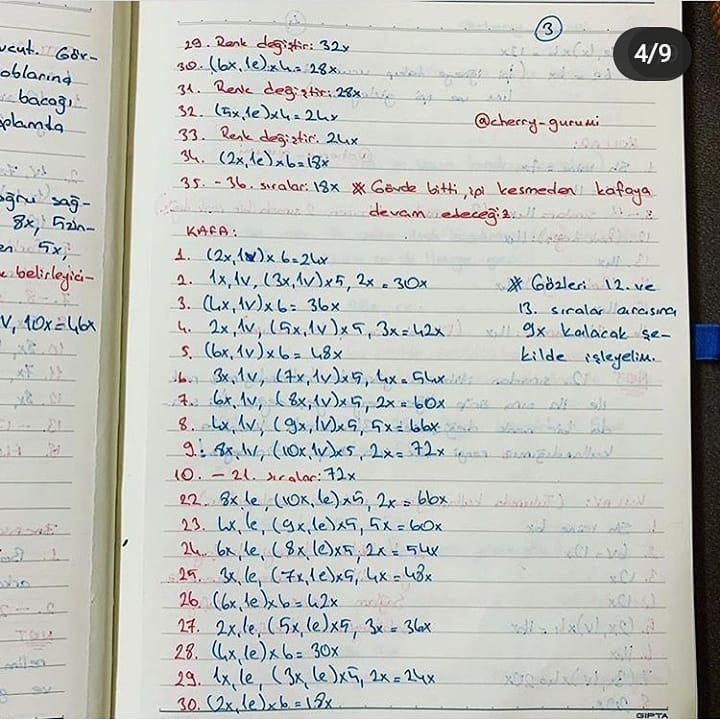 vucut. Göv-
oblarına
bacağı
plamda
oğru sağ-
8x, 5zin-
en 5x,
k belirleyici-
V, 10x=46x
3
4/9
29. Renk değiştir: 32x
30. (6x,1e)x4=28x
31. Renk değiştir: 28x
32. (5x,1e)x4=24x
@cherry-gurumi
33. Renk değiştir: 24x
34. (2x,1e)x6=18x
35. - 36. sıralar: 18x * Gövde bitti, ipi kesmeden kafaya
devam edeceğiz
KAFA:
1. (2x,1v)x6=24x
2. 1x,1v, (3x,1v)x5, 2x = 30x
3. (4x,1v)x6= 36x
4. 2x,1v, (5x,1v)x5, 3x=42x
5. (6x,1v)x6=48x
6. 3x,1v, (7x,1v)x5, 4x=54x
7. 6x,1v, (8x,1v)x5, 2x=60x
8. 4x,1v, (9x,1v)x5, 5x=66x
9. 8x,1v, (10x,1v)x5, 2x= 72x
10. - 21. sıralar: 72x
22. 8x,1e, (10x,1e)x5, 2x = 66x
23. 4x,1e, (9x,1e)x5, 5x=60x
24. 6x,1e, (8x,1e)x5, 2x= 54x
25. 3x,1e, (7x,1e)x5, 4x=48x
26. (6x,1e)x6=42x
27. 2x,1e, (5x,1e)x5, 3x= 36x
28. (4x,1e)x6= 30x
29. 1x,1e, (3x,1e)x5, 2x=24x
30. (2x,1e)x6=18x
* Gözleri 12. ve
13. sıralar arasına
9x kalacak şe-
kilde işleyelim.
GIPTA